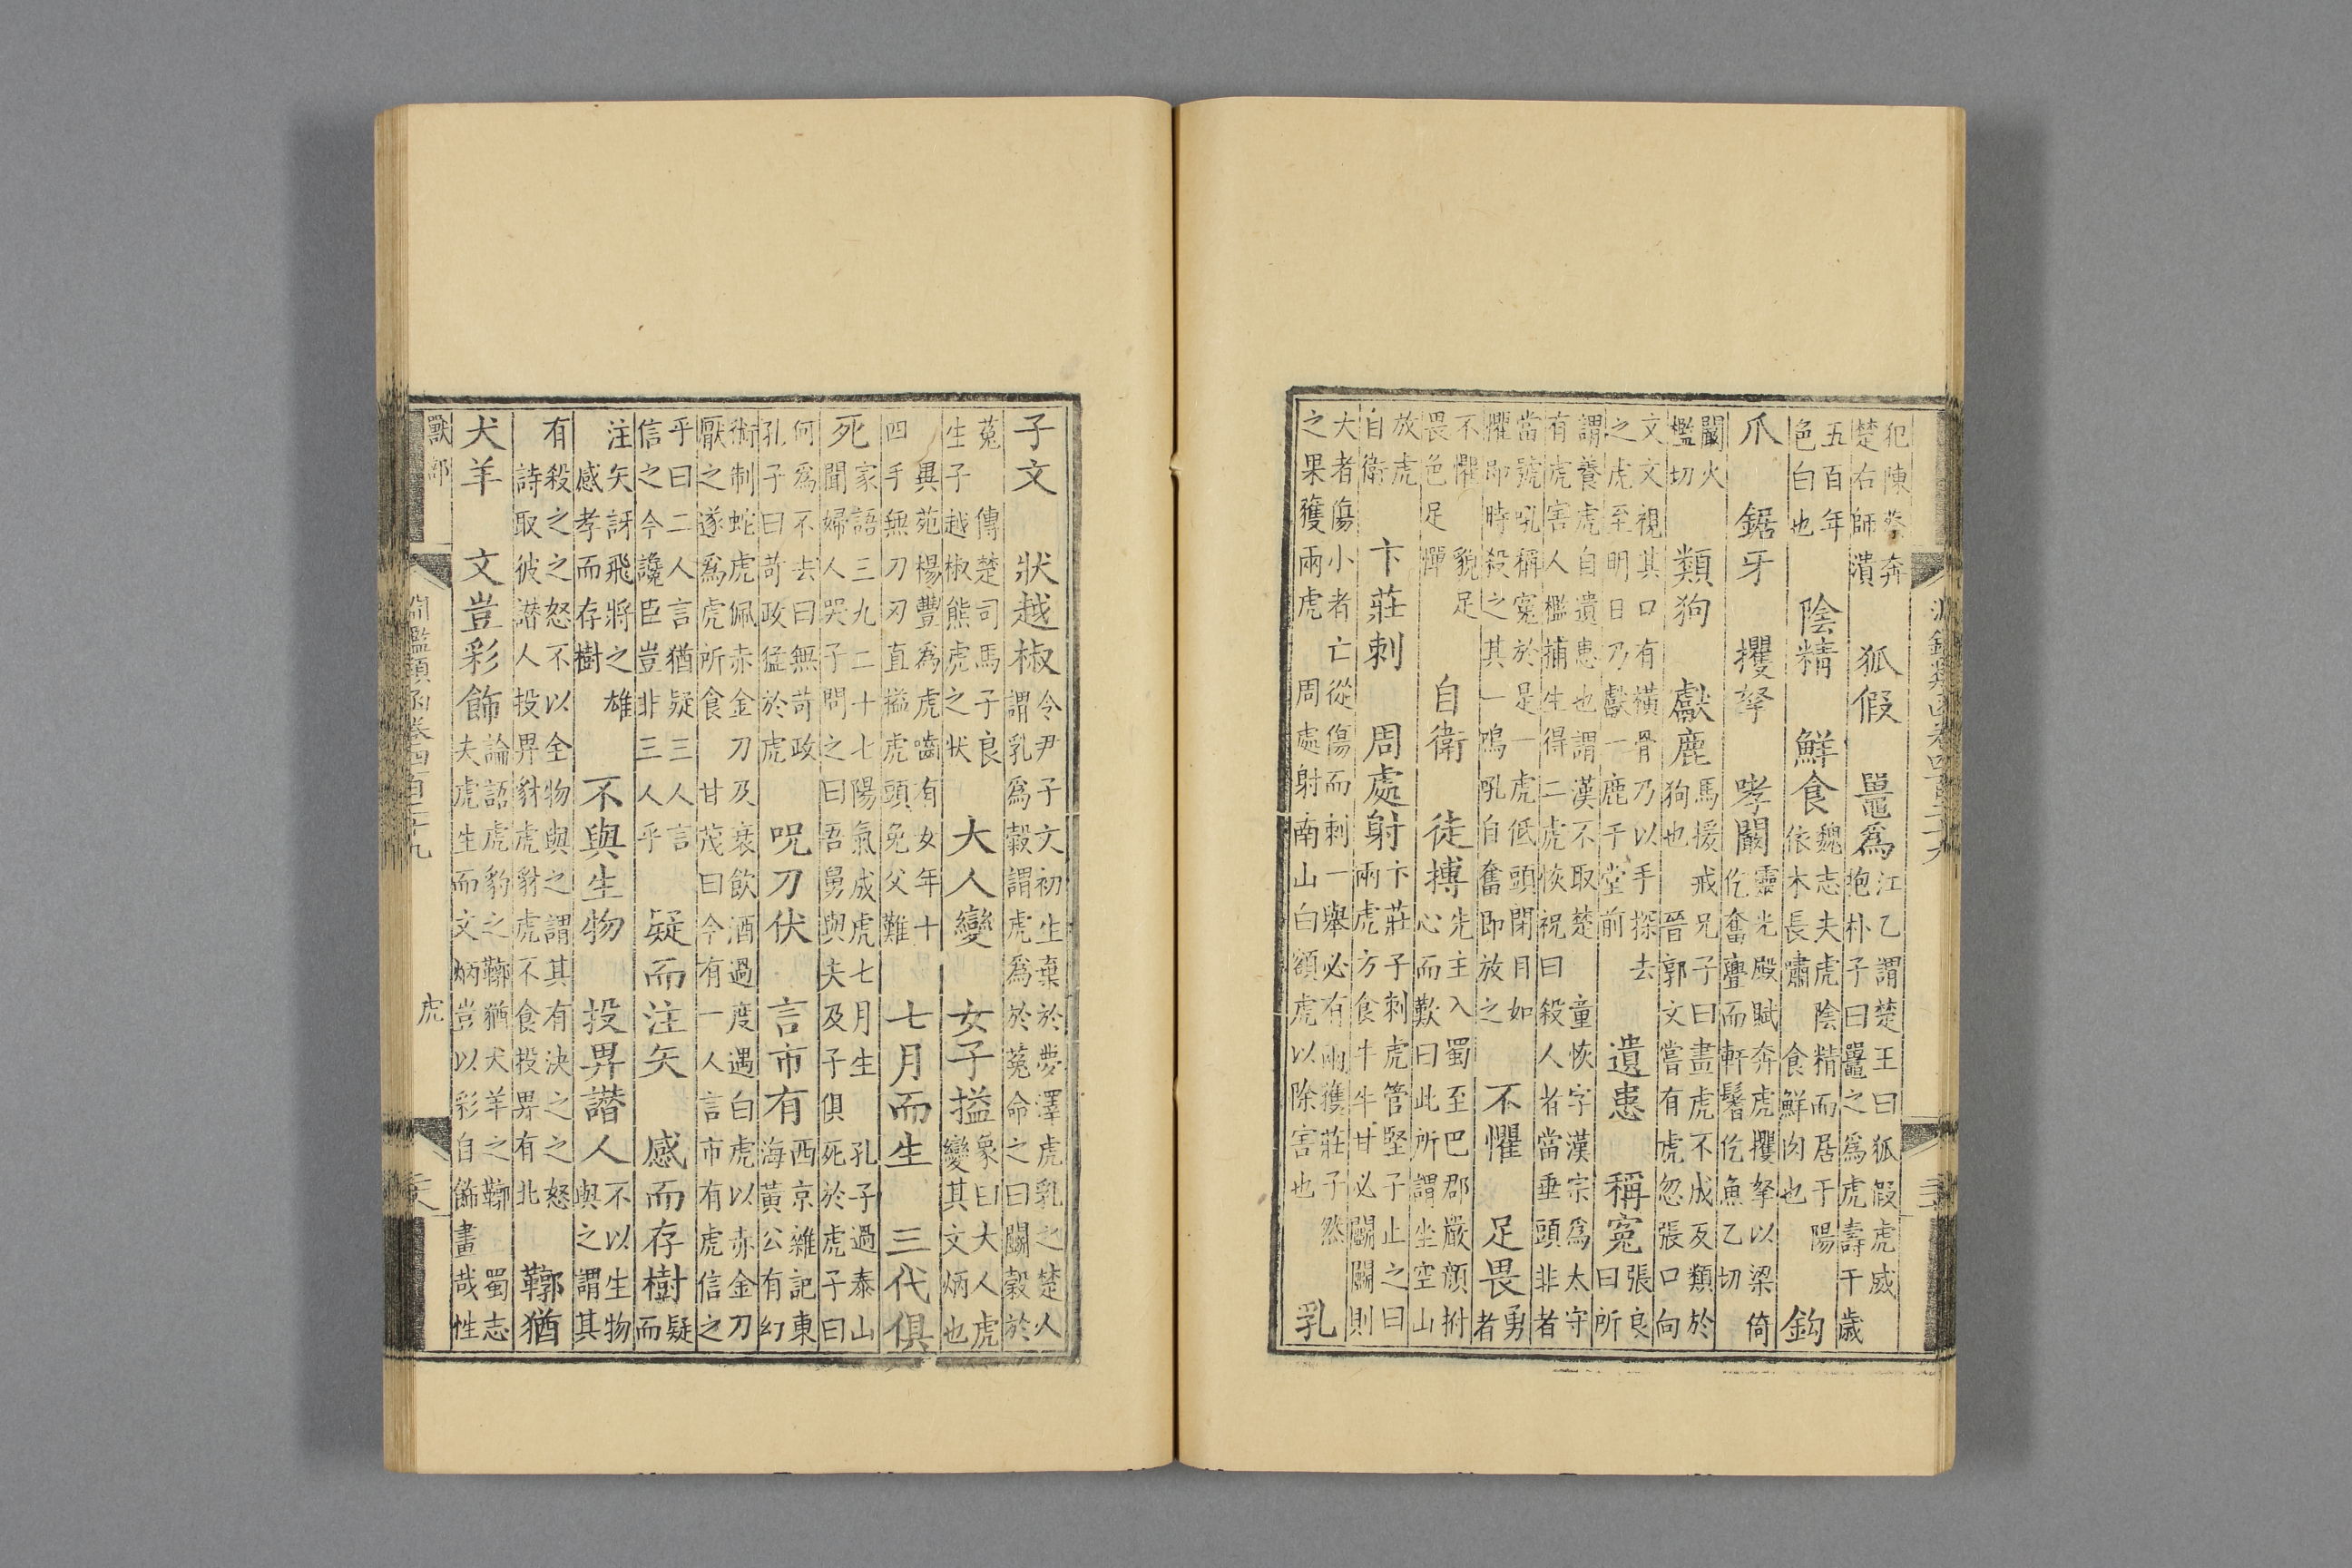 淵鑑類函卷四百二十九
犯陳蔡奔楚右師潰　狐假　鼉爲江乙謂楚王曰狐假虎威　抱朴子曰鼉之爲虎壽千歲
五百年色白也　陰精　鮮食魏志夫虎陰精而居于陽依木長嘯食鮮肉也　鈎
爪　鋸牙　攫挐　哮闞靈光殿賦奔虎攫挐以梁倚仡奮亹而軒鬐仡魚乙切
闞火檻切　類狗　獻鹿馬援戒兄子曰畫虎不成反類於狗也　晉郭文嘗有虎忽張口向
文文視其口有橫骨乃以手探去之虎至明日乃獻一鹿于堂前　遺患　稱寃張良曰所
謂養虎自遺患也謂漢不取楚　童恢字漢宗爲太守有虎害人檻捕生得二虎恢祝曰殺人者當垂頭非者
當號吼稱寃於是一虎低頭閉目如懼即時殺之其一鳴吼自奮即放之　不懼　足畏勇者
不懼　貌足畏色足憚　自衛　徒搏先主入蜀至巴郡嚴顔拊心而歎曰此所謂坐空山
放虎自衛　卞莊刺　周處射卞莊子刺虎管堅子止之曰兩虎方食牛牛甘必鬭鬭則
大者傷小者亡從傷而刺一舉必有兩獲莊子然之果獲兩虎　周處射南山白額虎以除害也　乳
子文　狀越椒令尹子文初生棄於夢澤虎乳之楚人謂乳爲穀謂虎爲於菟命之曰鬭穀於
菟　傳楚司馬子良生子越椒熊虎之狀　大人變　女子搤象曰大人虎變其文炳也
異苑楊豐爲虎嚙有女年十四手無刀刃直搤虎頭免父難　七月而生　三代俱
死家語三九二十七陽氣成虎七月生　孔子過泰山聞婦人哭子問之曰吾舅與夫及子俱死於虎子曰
何爲不去曰無苛政孔子曰苛政猛於虎　呪刀伏　言市有西京雜記東海黃公有幻
術制蛇虎佩赤金刀及衰飲酒過度遇白虎以赤金刀厭之遂爲虎所食　甘茂曰今有一人言市有虎信之
乎曰二人言猶疑三人言信之今讒臣豈非三人乎　疑而注矢　感而存樹疑而
注矢訝飛將之雄　感孝而存樹　不與生物　投畀譖人不以生物與之謂其
有殺之之怒不以全物與之謂其有決之之怒　詩取彼譖人投畀豺虎豺虎不食投畀有北　鞹猶
犬羊　文豈彩飾論語虎豹之鞹猶犬羊之鞹　蜀志夫虎生而文炳豈以彩自飾畫哉性
獸部　淵鑑類函卷四百二十九　虎